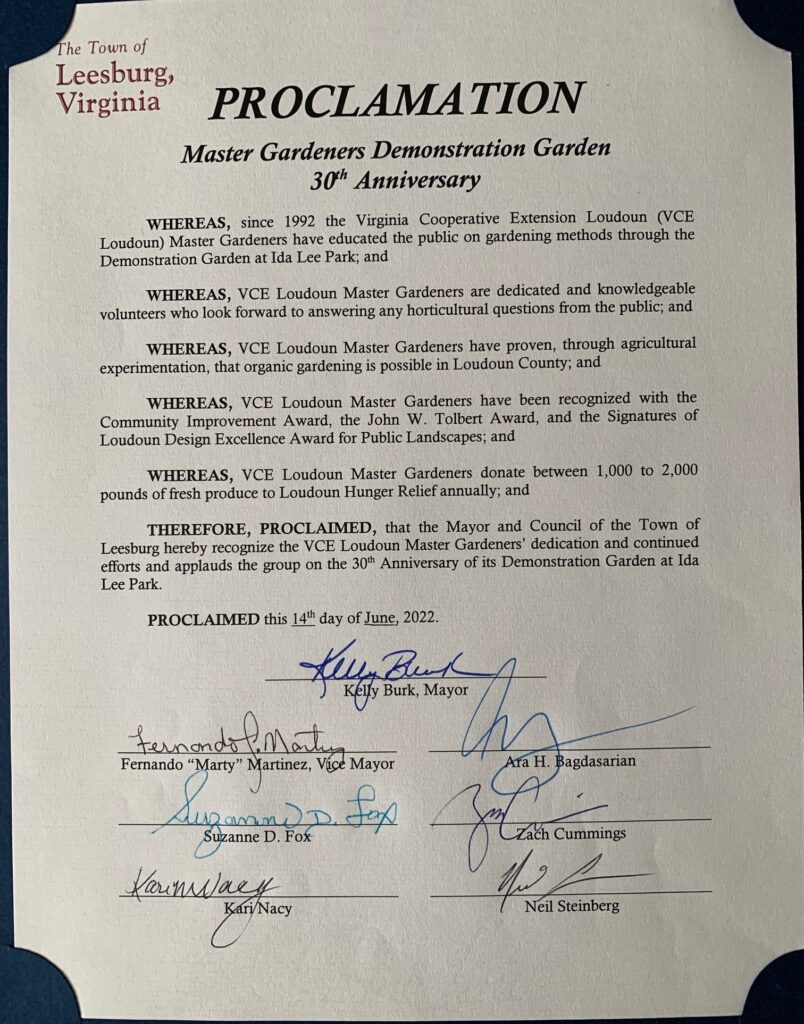 The Town of
Leesburg,
Virginia
PROCLAMATION
Master Gardeners Demonstration Garden
30th Anniversary
WHEREAS, since 1992 the Virginia Cooperative Extension Loudoun (VCE
Loudoun) Master Gardeners have educated the public on gardening methods through the
Demonstration Garden at Ida Lee Park; and
WHEREAS, VCE Loudoun Master Gardeners are dedicated and knowledgeable
volunteers who look forward to answering any horticultural questions from the public; and
WHEREAS, VCE Loudoun Master Gardeners have proven, through agricultural
experimentation, that organic gardening is possible in Loudoun County; and
WHEREAS, VCE Loudoun Master Gardeners have been recognized with the
Community Improvement Award, the John W. Tolbert Award, and the Signatures of
Loudoun Design Excellence Award for Public Landscapes; and
WHEREAS, VCE Loudoun Master Gardeners donate between 1,000 to 2,000
pounds of fresh produce to Loudoun Hunger Relief annually; and
THEREFORE, PROCLAIMED, that the Mayor and Council of the Town of
Leesburg hereby recognize the VCE Loudoun Master Gardeners' dedication and continued
efforts and applauds the group on the 30th Anniversary of its Demonstration Garden at Ida
Lee Park.
PROCLAIMED this 14th day of June, 2022.
Kelly Burk
Kelly Burk, Mayor
Fernando "Marty" Martinez, Vice Mayor
Ara H. Bagdasarian
Suzanne D. Fox
Suzanne D. Fox
Zach Cummings
Kari Nacy
Kari Nacy
Neil Steinberg